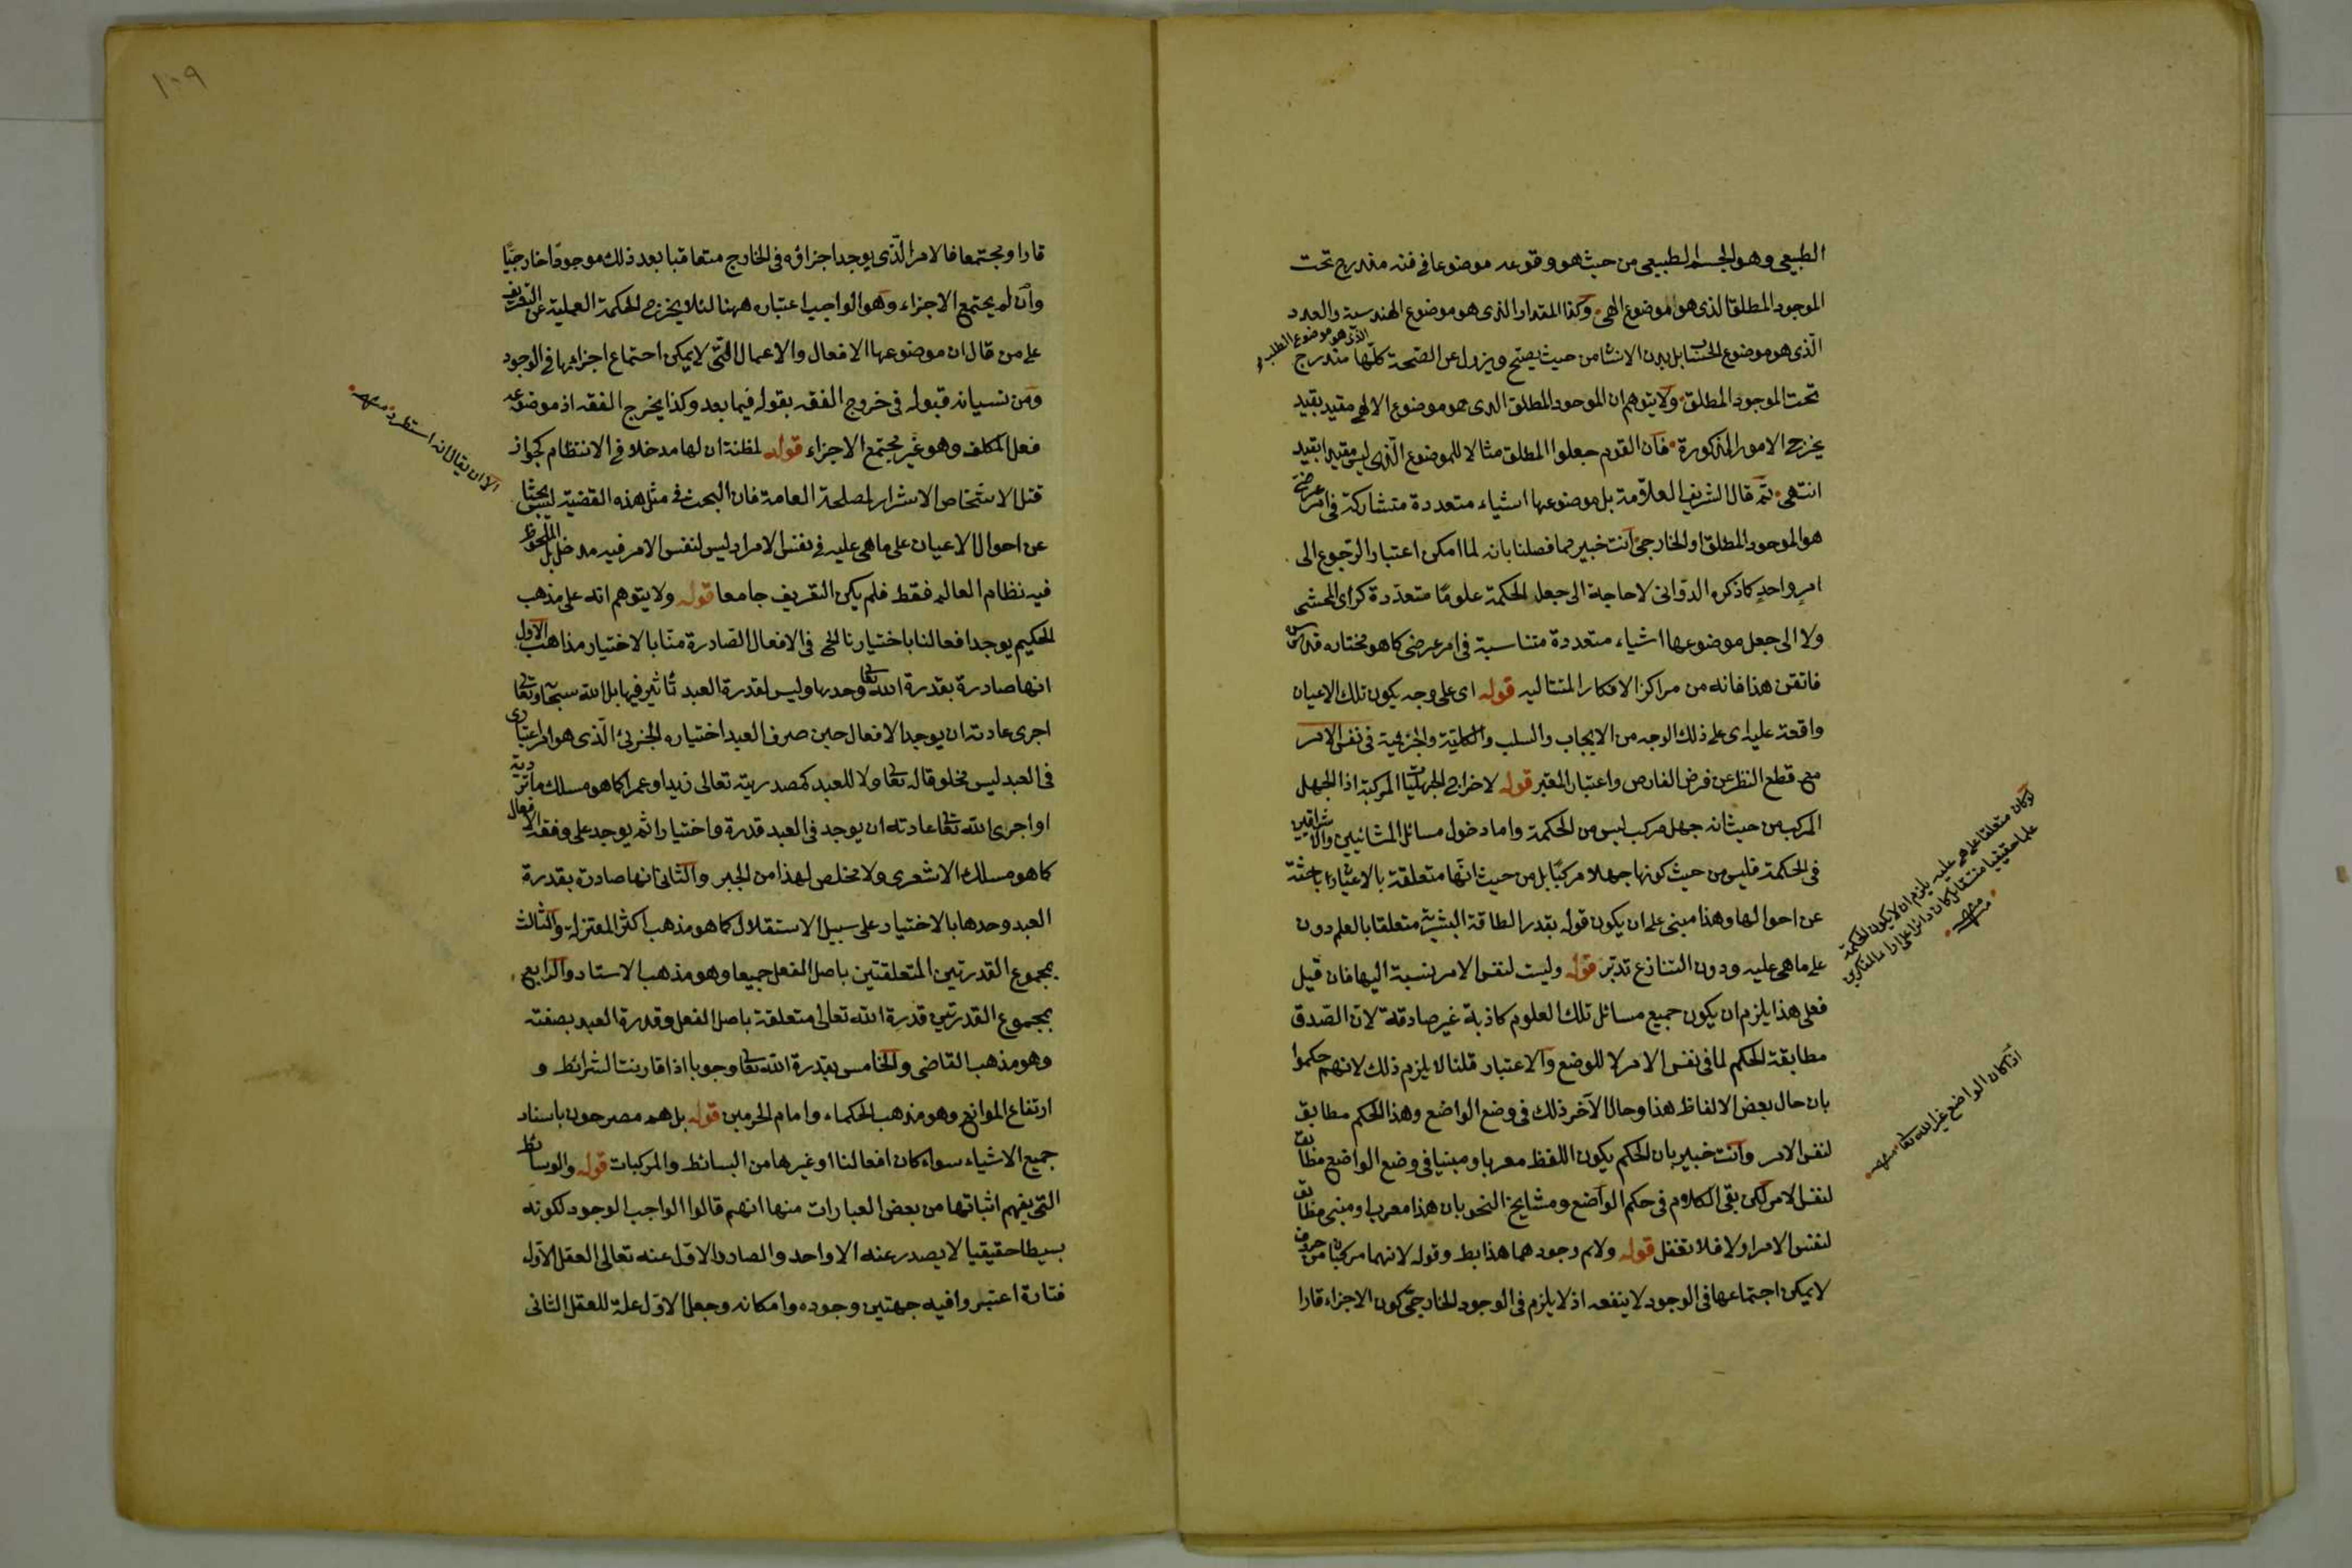 الطبيعى وهو الجسم الطبيعى من حيث هو وقوعه موضوعا فى فنه مندرج تحت
الموجود المطلق الذى هو موضوع الهى وكذا المقدار الذى هو موضوع الهندسة والعدد
الّذى هو موضوع الحساب بل بدن الانسان من حيث يصحّ ويزول عن الصّحة الذى هو موضوع الطب كلّها مندرج
تحت الموجود المطلق ولا يتوهم ان الموجود المطلق الذى هو موضوع الالهى مقيد بقيد
يخرج الامور المذكورة فان القوم جعلوا المطلق مثالا للموضوع الّذى ليس مقيدا بقيد
انتهى ثمّ قال الشريف العلاّمة بل موضوعها اشياء متعددة متشاركة فى امر عرضى
هو الموجود المطلق او الخارجى وانت خبير مما فصلنا بانه لما امكن اعتبار الرّجوع الى
امرٍ واحدٍ كما ذكره الدوّانى لا حاجة الى جعل الحكمة علومًا متعدّدة كرأى المحشى
ولا الى جعل موضوعها اشياء متعددة متناسبة فى امر عرضى كما هو مختار قدس سره
فاتقن هذا فانه من مراكز الافكار المتتاليه قوله اى على وجه يكون تلك الاعيان
واقعة عليه اى على ذلك الوجه من الايجاب والسلب والكليّة والجزئية فى نفس الامر
مع قطع النظر عن فرض الفارض واعتبار المعتبر قوله لاخراج الجهليات المركبة اذا الجهل
المركب من حيث انه جهل مركب ليس من الحكمة واما دخول مسائل المشائيين والاشراقيين
فى الحكمة فليس من حيث كونها جهلا مركبًا بل من حيث انّها متعلقة بالاعيان باحثة
عن احوالها وهذا مبنى على ان يكون قوله بقدر الطاقة البشرية متعلقا بالعلم دون
على ما هى عليه ودون التنازع تدبّر قوله وليت لنفس الامر بنسبة اليها فان قيل
فعلى هذا يلزم ان يكون جميع مسائل تلك العلوم كاذبة غير صادقة لان الصّدق
مطابقة الحكم لما فى نفس الامر لا للوضع والاعتبار قلنا لا يلزم ذلك لانهم حكموا
بان حال بعض الالفاظ هذا وحال الآخر ذلك فى وضع الواضع وهذا الحكم مطابق
لنفس الامر وانت خبير بان الحكم بكون اللفظ معربا ومبنيا فى وضع الواضع مطابق
لنفس الامر لكن بقى الكلام فى حكم الواضع ومشايخ النحو بان هذا معرب او مبنى مطابق
لنفس الامر اولا فلا تغفل قوله ولا م وجودهما هذا بط وقوله لانهما مركبان من حروف
لا يمكن اجتماعها فى الوجود لا ينفعه اذ لا يلزم فى الوجود الخارجى كون الاجزاء قارا
لو كان متعلقا على ما هى عليه يلزم ان لا يكون الحكمة
علما حقيقيا مستقل كان دائرا على اراء المتفكرين
منه
اذا كان الواضع غير الله تعا منه
١٠٩
قارا ومجتمعا فالامر الّذى يوجد اجزاؤه فى الخارج متعاقبا بعد ذلك موجودًا خارجيًّا
وان لم يجتمع الاجزاء وهو الواجب اعتباره ههنا لئلا يخرج الحكمة العملية عن التعريف
على من قال ان موضوعها الافعال والاعمال التّى لا يمكن اجتماع اجزائها فى الوجود
ومن نسيانه قبوله فى خروج الفقه بقوله فيما بعد وكذا يخرج الفقه اذ موضوعه
فعل المكلف وهو غير مجتمع الاجزاء قوله لمظنة ان لها مدخلا فى الانتظام كجواز
قتل الاشخاص الاشرار لمصلحة العامة فان البحث فى مثل هذه القضية ليس بحثا
عن احوال الاعيان على ما هى عليه فى نفس الامر اذ ليس لنفس الامر فيه مدخل بل الملحوظ
فيه نظام العالم فقط فلم يكن التعريف جامعا قوله ولا يتوهم انه على مذهب
الحكيم يوجد افعالنا باختيارنا الخ فى الافعال الصّادرة منّا بالاختيار مذاهب الاول
انها صادرة بقدرة الله تعا وحدها وليس لقدرة العبد تأثير فيها بل الله سبحا وتعا
اجرى عادته ان يوجد الافعال حين صرف العبد اختياره الجزئى الّذى هو امر اعتبارى
فى العبد ليس مخلوقا له تعا ولا للعبد كمصدرية تعالى زيدا وعمرا كما هو مسلك ماتريدية
او اجرى الله تعا عادته ان يوجد فى العبد قدرة واختيارا ثم يوجد على وفقه الافعال
كما هو مسلك الاشعرى ولا مخلص لهذا من الجبر والثانى انها صادرة بقدرة
العبد وحدها بالاختيار على سبيل الاستقلال كما هو مذهب اكثر المعتزلة والثالث
بمجموع القدرتين المتعلقتين باصل الفعل جميعا وهو مذهب الاستاد والرابع
بمجموع القدرتين قدرة الله تعالى متعلقة باصل الفعل وقدرة العبد بصفته
وهو مذهب القاضى والخامس بقدرة الله تعا وجوبا اذا قارنت الشرائط و
ارتفاع الموانع وهو مذهب الحكماء وامام الحرمين قوله بل هم مصرحون باسناد
جميع الاشياء سواء كان افعالنا او غيرها من البسائط والمركبات قوله والوسائط
التى يفهم اثباتها من بعض العبارات منها انهم قالوا الواجب الوجود لكونه
بسيطا حقيقيا لا يصدر عنه الا واحد والصادر الاوّل عنه تعالى العقل الاوّل
فتارة اعتبروا فيه جهتين وجوده وامكانه وجعل الاوّل علة للعقل الثانى
الا ان يقال انه استطرد منه